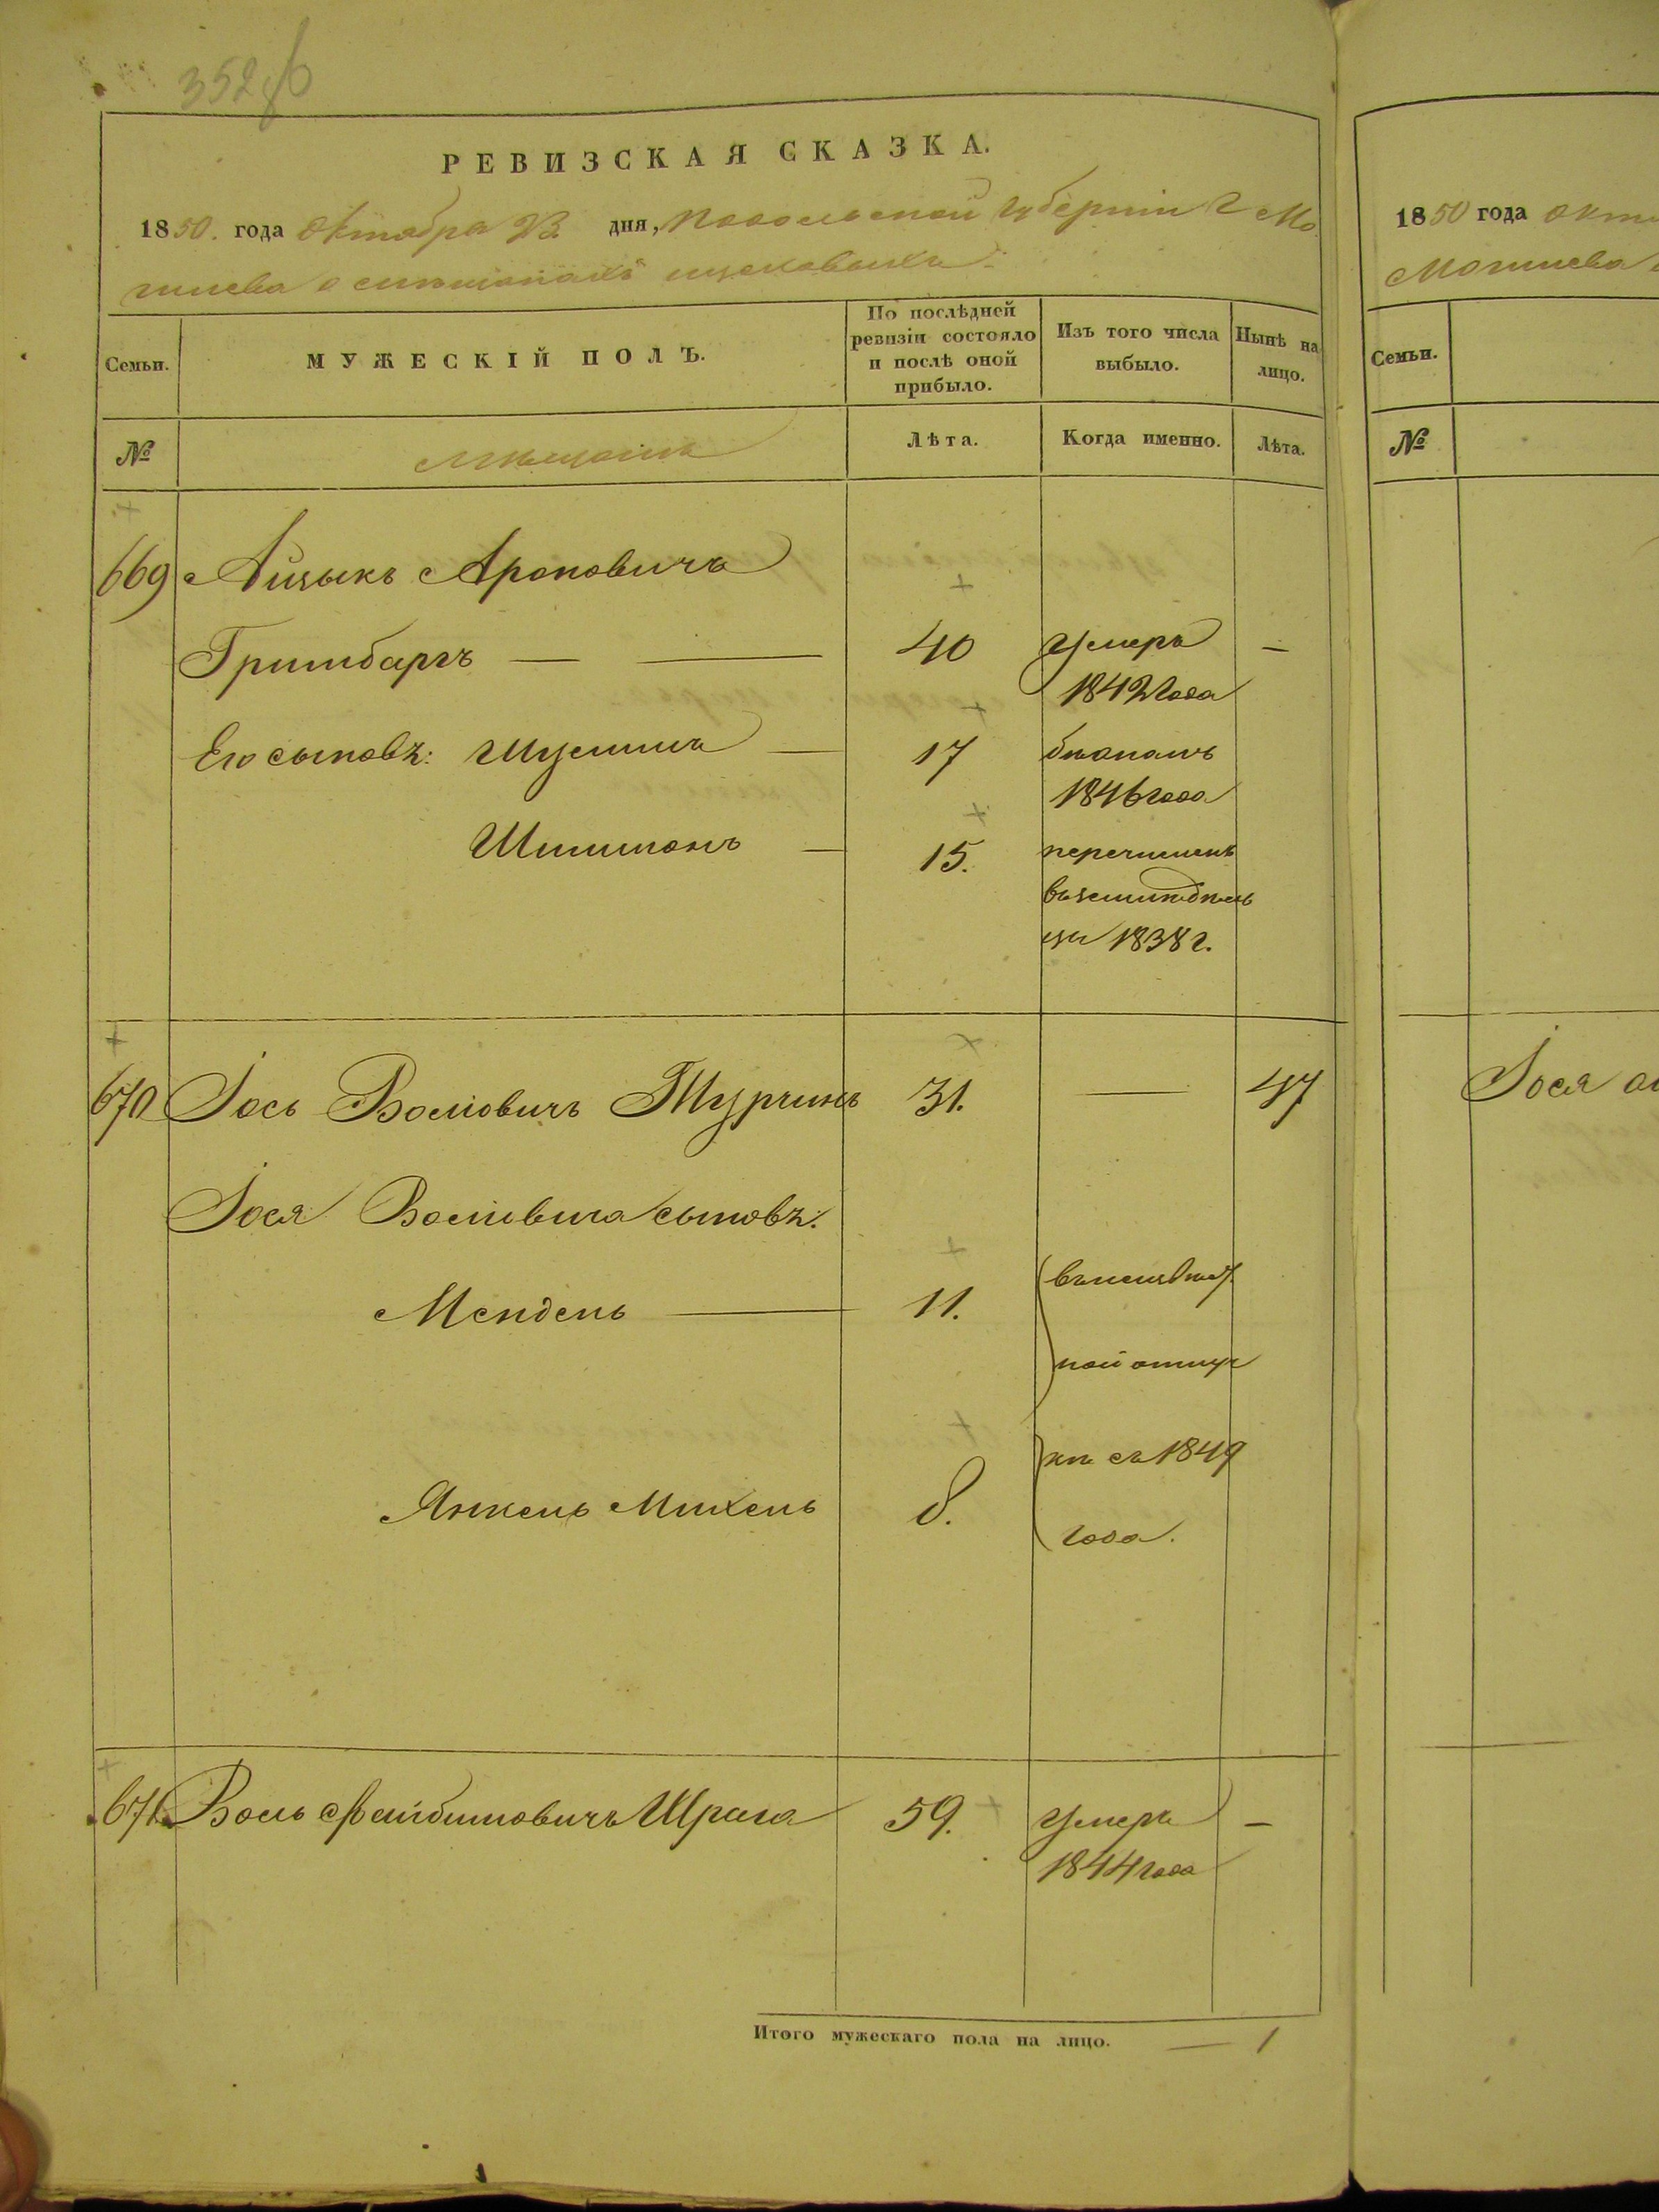 352 об
РЕВИЗСКАЯ СКАЗКА.
1850. года Октября 23. дня, Подольской Губерніи Г Мо
гилева о
Семьи.
МУЖЕСКІЙ ПОЛЪ.
По послѣдней ревизіи состояло и послѣ оной прибыло.
Изъ того числа выбыло.
Нынѣ на лицо.
№
Мѣщане
Лѣта.
Когда именно.
Лѣта.
669 Айзыкъ Ароновичъ
Гринбаргъ — — 40 умеръ —
1842 года
Его сыновъ: Шулимъ — 17 въ бѣгахъ
1846 года
Шимшонъ — 15. перечисленъ
въ земледѣль
цы 1838 г.
670 Іось Волковичъ Турчинъ 31. — 47
Іося Волковича сыновъ:
Мендель — 11. въ неизвѣст
ной отлуч
Янкель Михель 8. кѣ съ 1849
года.
671. Волъ Лейбишовичъ Шрага 59. умеръ —
1844 года
Итого мужескаго пола на лицо. — 1
1850 года окт
Могилева
Семьи.
№
Іося